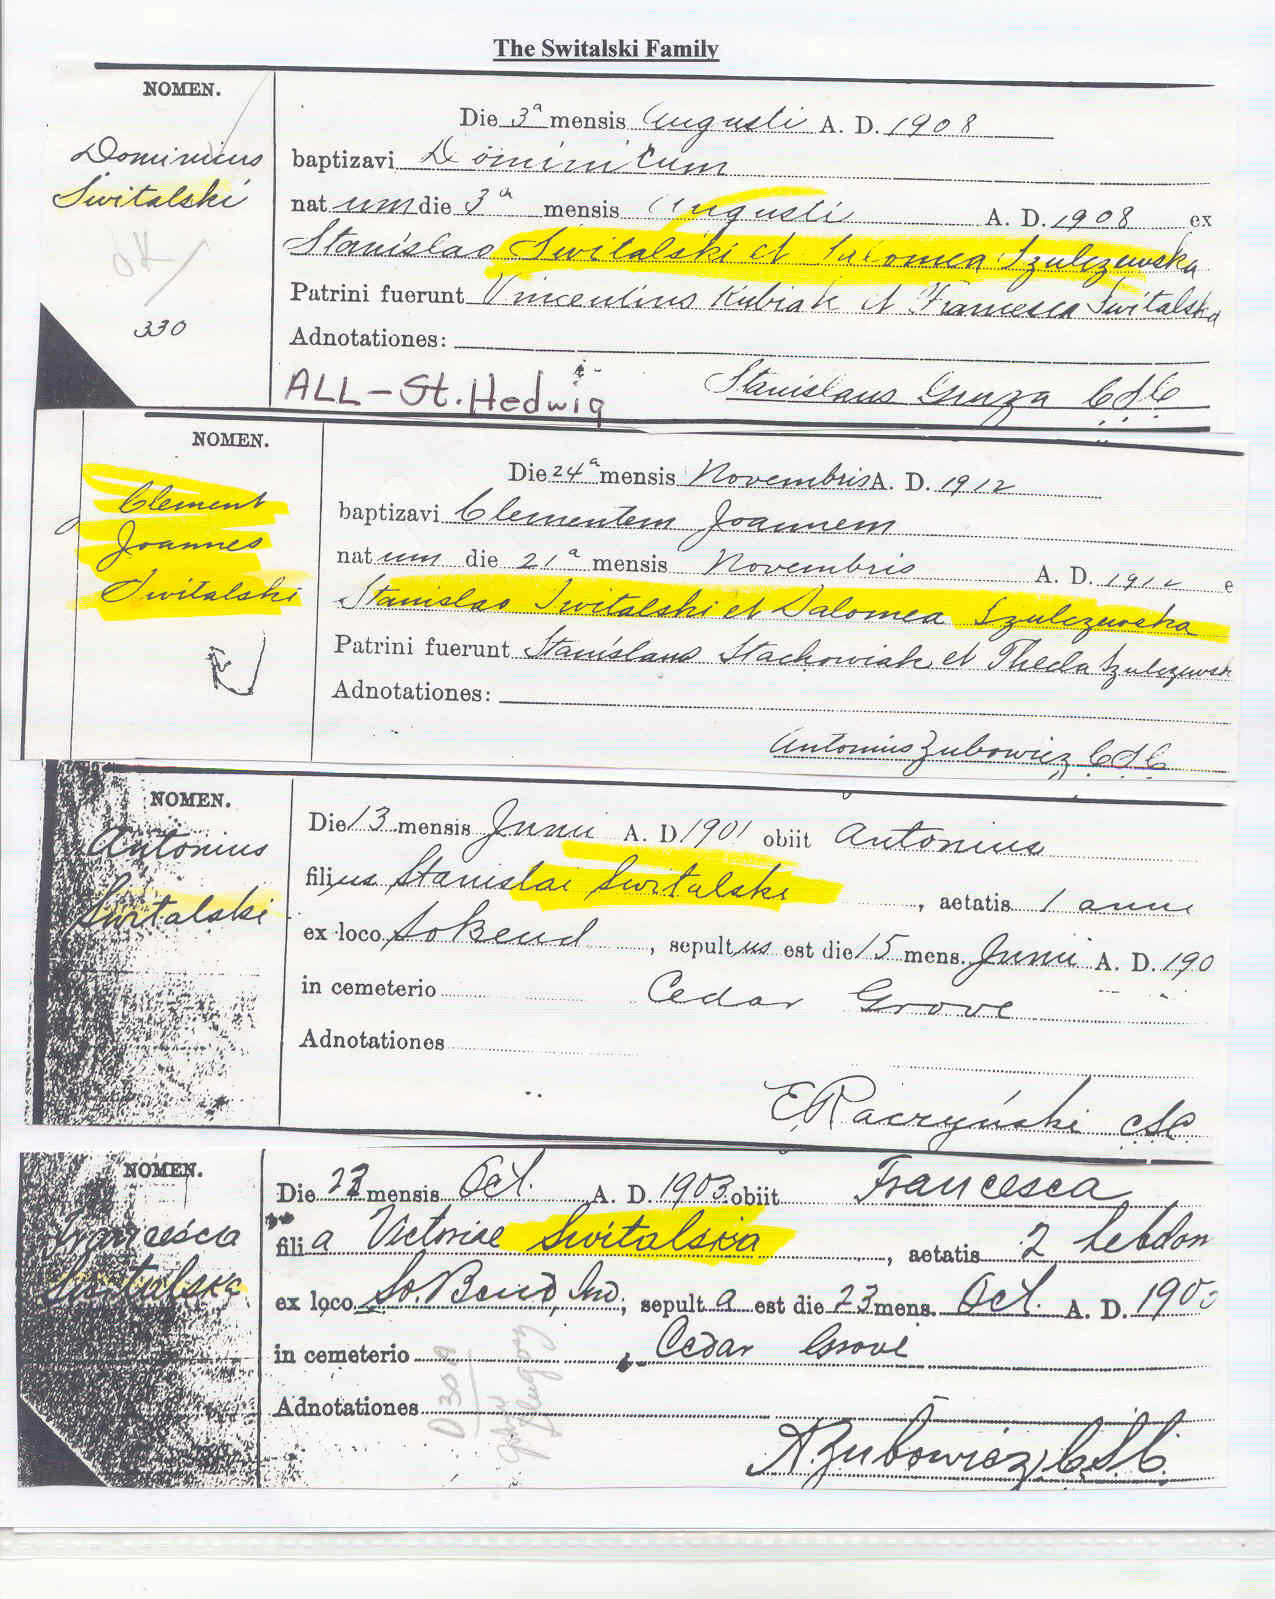 The Switalski Family
NOMEN.
Dominicus
Switalski
OK
330
Die 3ª mensis Augusti A. D. 1908
baptizavi Dominicum
nat um die 3ª mensis Augusti A. D. 1908 ex
Stanislao Switalski et Salomea Szulczewska
Patrini fuerunt Vincentius Kubiak et Francesca Switalska
Adnotationes:
ALL - St. Hedwig
Stanislaus Gruza CSC
NOMEN.
Clement
Joannes
Switalski
Die 24ª mensis Novembris A. D. 1912
baptizavi Clementem Joannem
nat um die 21ª mensis Novembris A. D. 1912 e
Stanislao Switalski et Salomea Szulczewska
Patrini fuerunt Stanislaus Stachowiak et Thecla Szulczewsk
Adnotationes:
Antonius Zubowicz CSC
NOMEN.
Antonius
Switalski
Die 13 mensis Junii A. D 1901 obiit Antonius
filius Stanislai Switalski, aetatis 1 anni
ex loco So Bend, sepult us est die 15 mens. Junii A. D. 190
in cemeterio Cedar Grove
Adnotationes
E Raczyński CSC
NOMEN.
Francesca
Switalska
Die 23 mensis Oct. A. D. 1903 obiit Francesca
fili a Victoriae Switalska, aetatis 2 hebdom
ex loco So. Bend, Ind, sepult a est die 23 mens. Oct. A. D. 1903
in cemeterio Cedar Grove
Adnotationes
A Zubowicz, C.S.C.